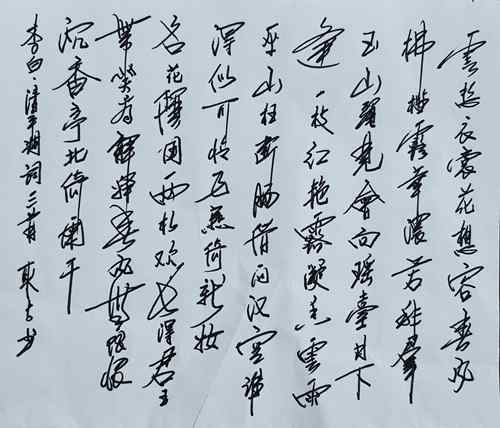 雲想衣裳花想容春风
拂檻露華濃若非羣
玉山頭見會向瑶臺月下
逢一枝红艳露凝香雲雨
巫山枉断腸借问汉宫誰
得似可怜飞燕倚新妆
名花傾国两相欢长得君王
带笑看解釋春风無限恨
沉香亭北倚闌干
李白·清平调词三首 東方少